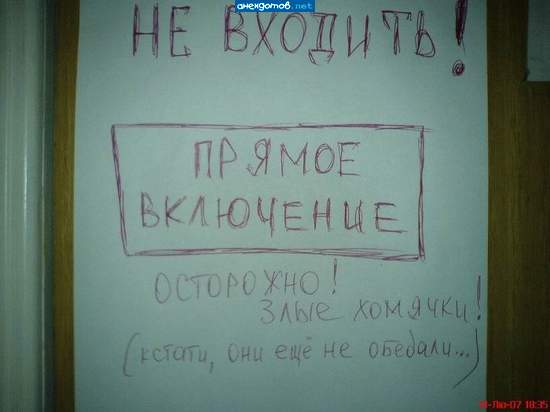 анекдотов.net
НЕ ВХОДИТЬ!
ПРЯМОЕ
ВКЛЮЧЕНИЕ
ОСТОРОЖНО!
ЗЛЫЕ ХОМЯЧКИ!
(кстати, они ещё не обедали...)
18:35